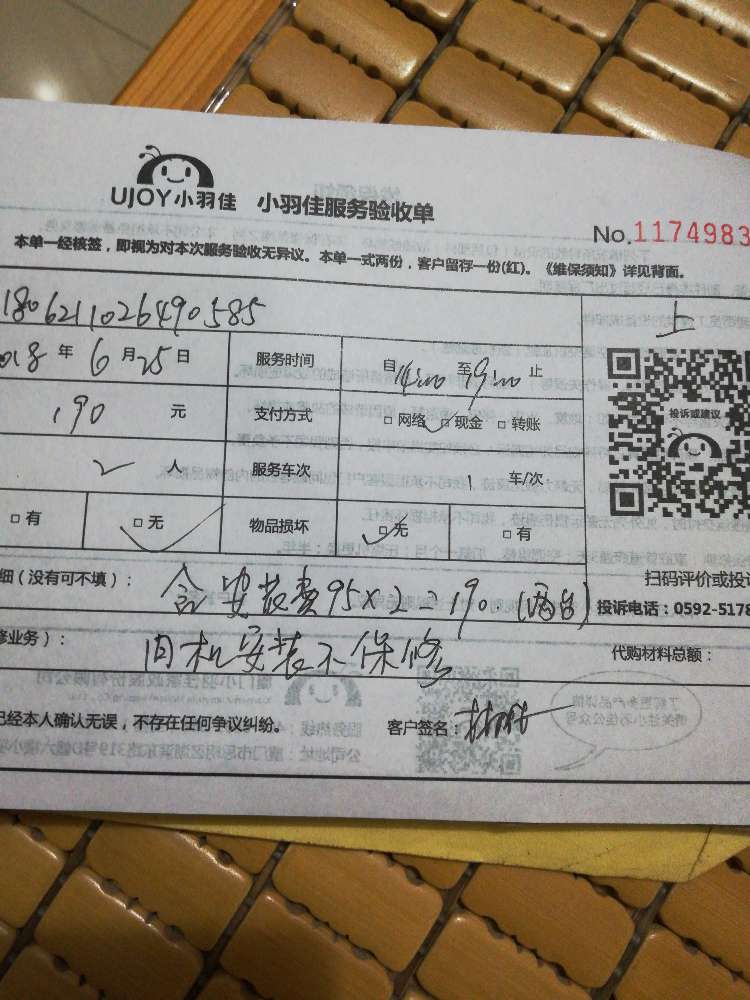 UJOY小羽佳 小羽佳服务验收单
No.1174983
本单一经核签，即视为对本次服务验收无异议。本单一式两份，客户留存一份(红)。《维保须知》详见背面。
180621102649058 5
018年6月25日 服务时间 自14:00至19:00止
190元 支付方式 □网络 □现金 □转账
投诉或建议
2人 服务车次 1车/次
□有 □无 物品损坏 □无 □有
扫码评价或投诉
细（没有可不填）： 含安装费95×2=190.(两台)
投诉电话：0592-5178
修业务）： 旧机安装不保修
代购材料总额：
已经本人确认无误，不存在任何争议纠纷。 客户签名：